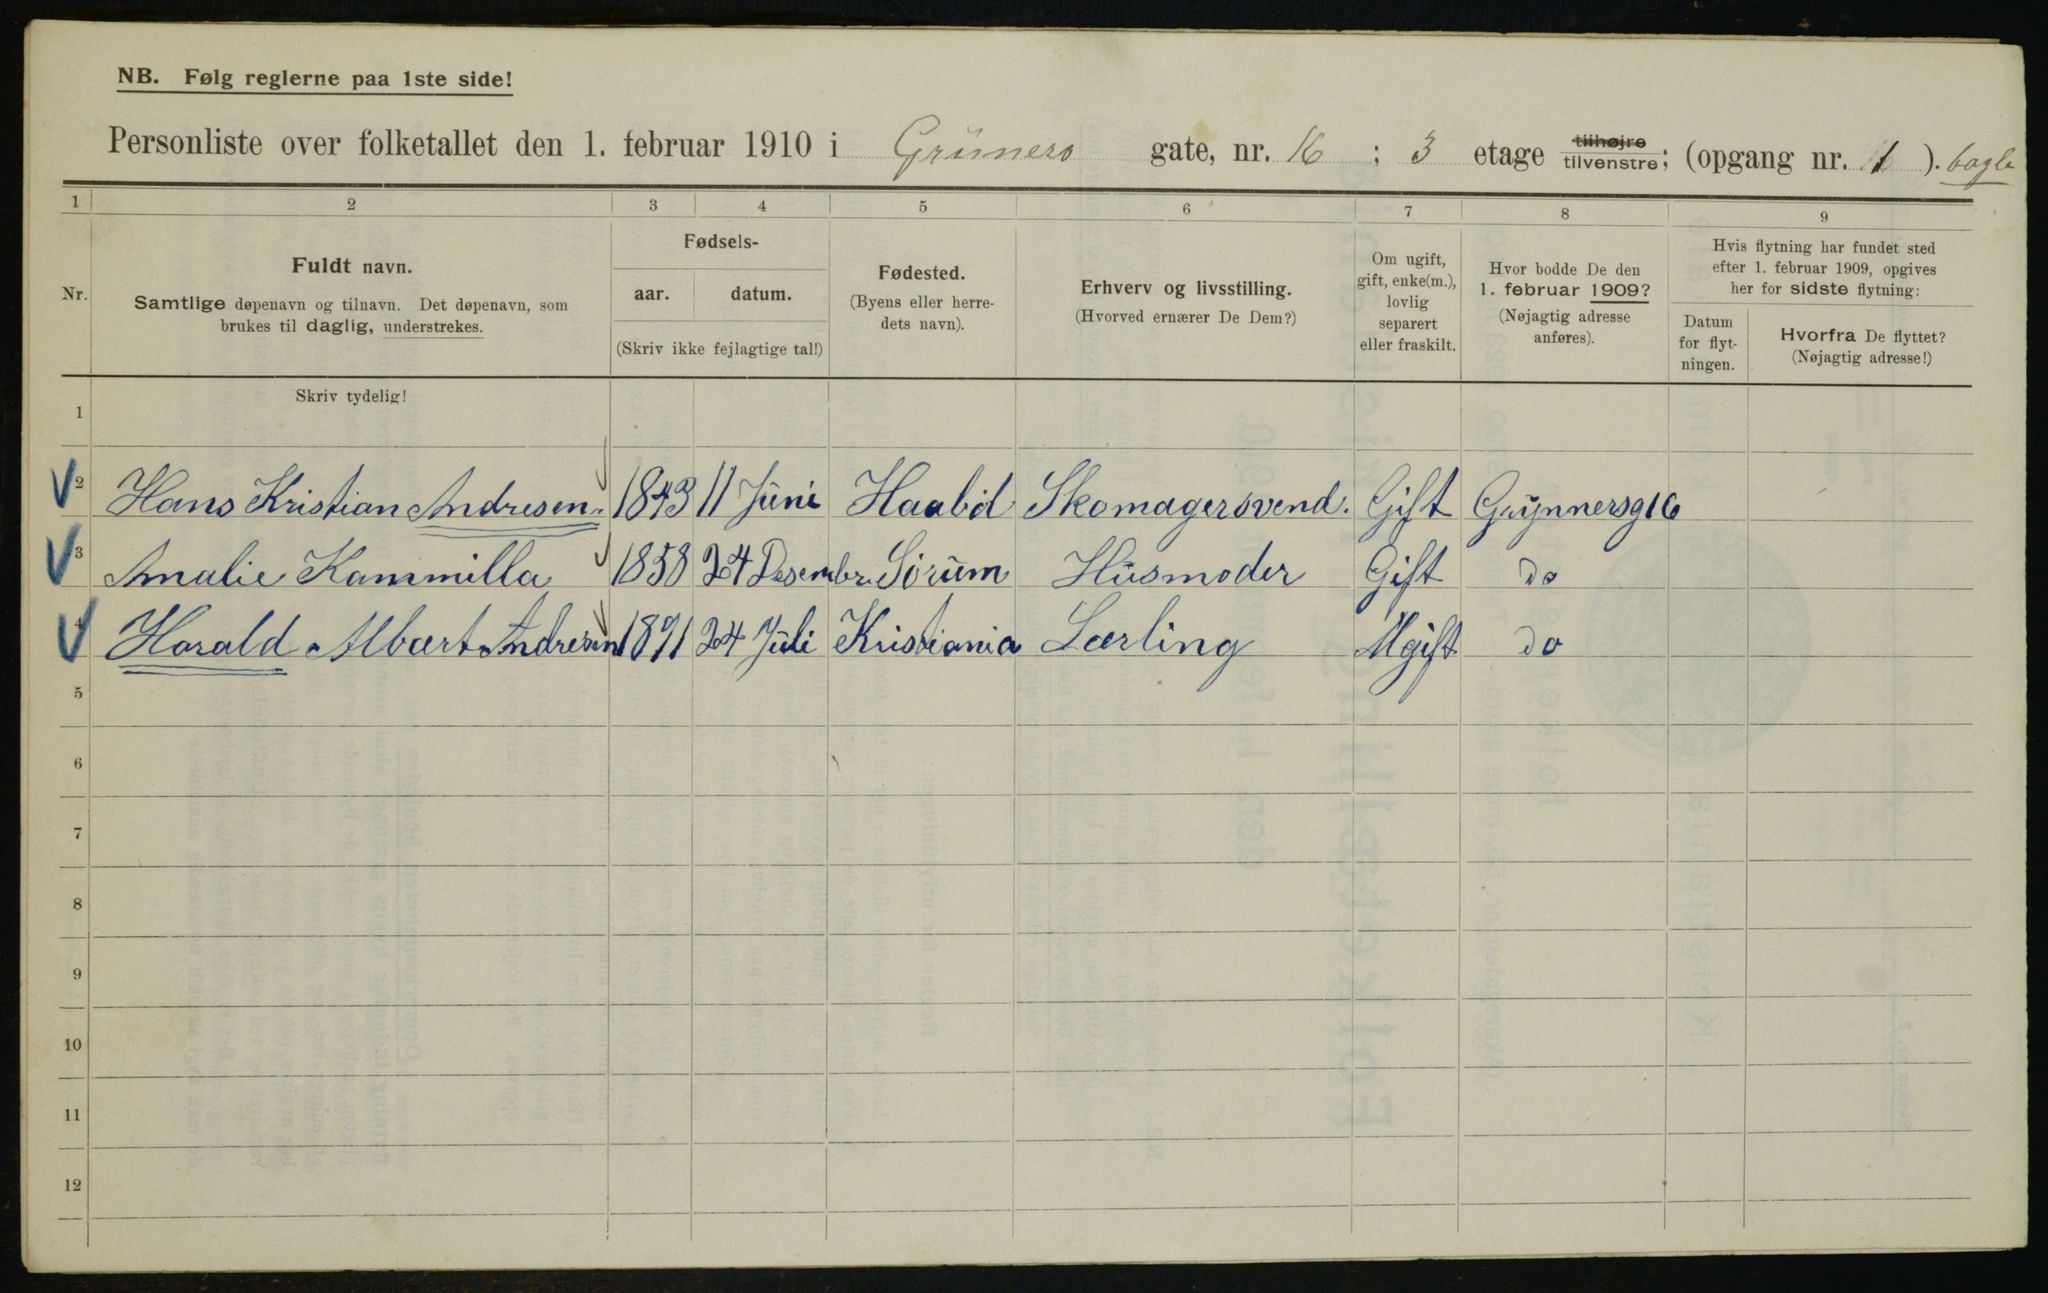 NB. Følg reglerne paa 1ste side!
Personliste over folketallet den 1. februar 1910 i Grüners gate, nr. 16 : 3 etage tilhøjre tilvenstre; (opgang nr. 1 ).
1 2 3 4 5 6 7 8 9
Nr.
Fuldt navn.
Samtlige døpenavn og tilnavn. Det døpenavn, som
brukes til daglig, understrekes.
Fødsels-
aar. datum.
(Skriv ikke fejlagtige tal!)
Fødested.
(Byens eller herre-
dets navn).
Erhverv og livsstilling.
(Hvorved ernærer De Dem?)
Om ugift,
gift, enke(m.),
lovlig
separert
eller fraskilt.
Hvor bodde De den
1. februar 1909?
(Nøjagtig adresse
anføres).
Hvis flytning har fundet sted
efter 1. februar 1909, opgives
her for sidste flytning:
Datum
for flyt-
ningen.
Hvorfra De flyttet?
(Nøjagtig adresse!)
Skriv tydelig!
1
2 Hans Kristian Andresen. 1843 11 Juni Haabøl Skomagersvend. Gift Grynnersg 16
3 Amalie Kammilla 1858 24 Desembr. Sørum Husmoder Gift do
4 Harald Albært Andresen 1891 24 Juli Kristiania Lærling Ugift do
5
6
7
8
9
10
11
12